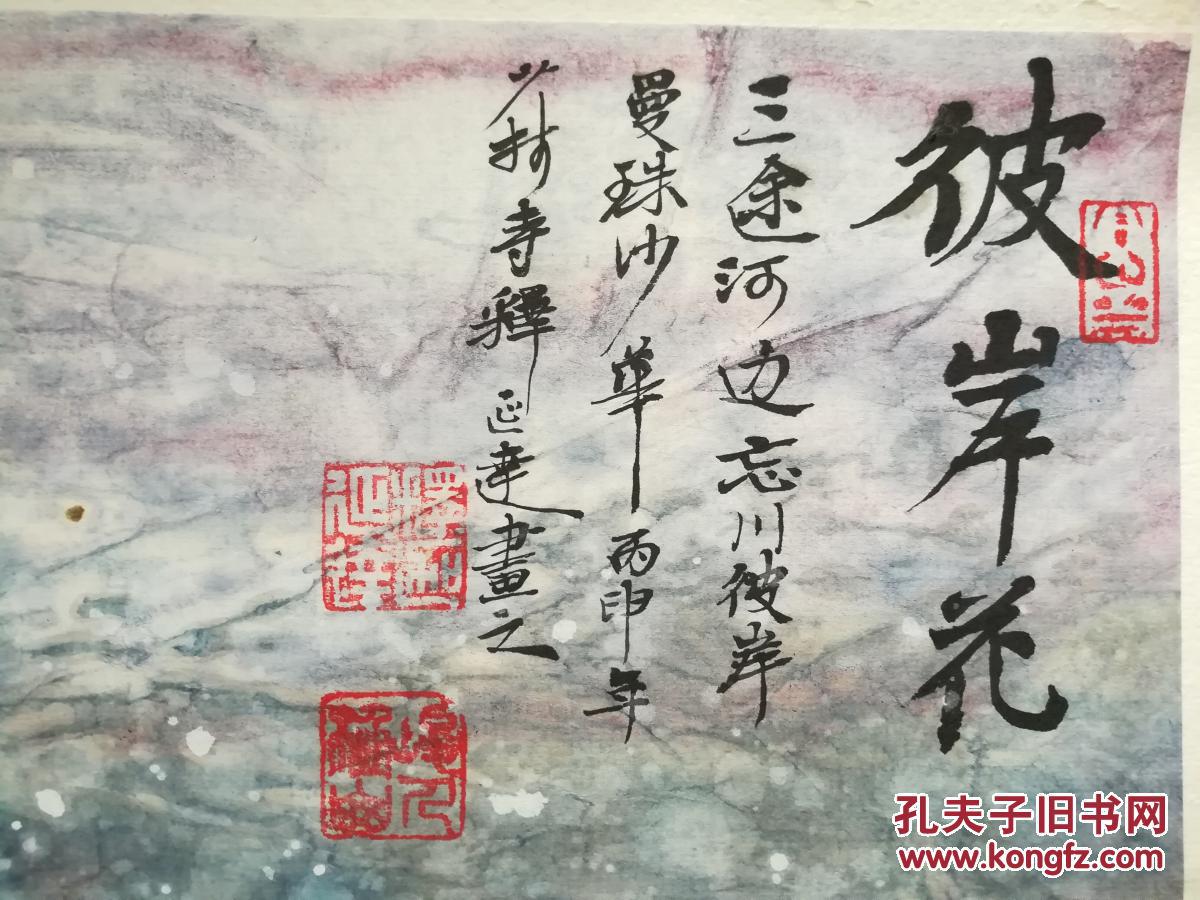 彼岸花
三途河边忘川彼岸
曼珠沙華丙申年
少林寺釋延達畫之
孔夫子旧书网
www.kongfz.com